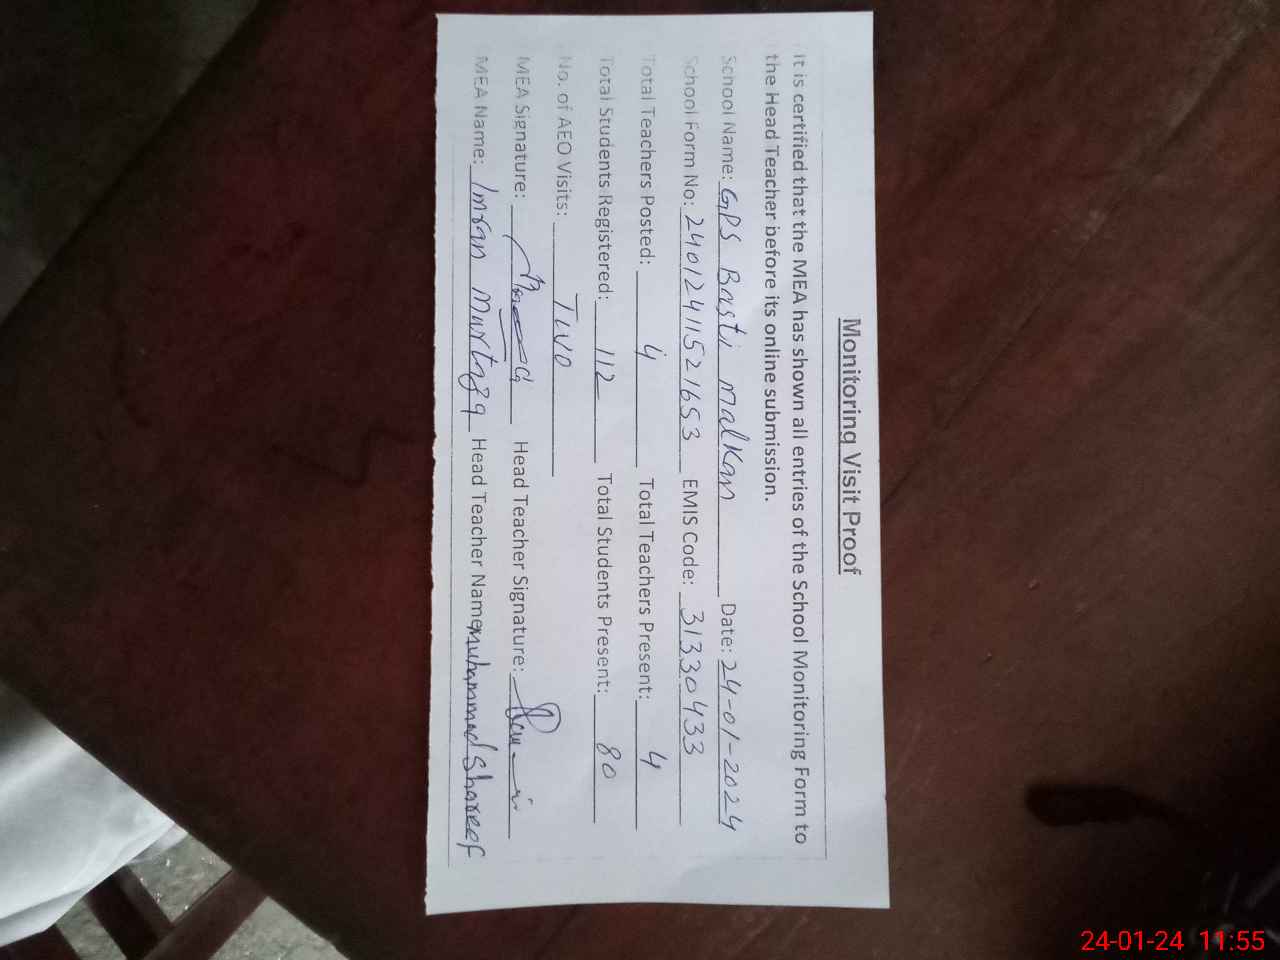 Monitoring Visit Proof
It is certified that the MEA has shown all entries of the School Monitoring Form to
the Head Teacher before its online submission.
School Name: GPS Basti Malkan Date: 24-01-2024
School Form No: 24012411521653 EMIS Code: 31330433
Total Teachers Posted: 4 Total Teachers Present: 4
Total Students Registered: 112 Total Students Present: 80
No. of AEO Visits: Two
MEA Signature: Head Teacher Signature:
MEA Name: Imran Murtaza Head Teacher Name: Muhammad Shareef
24-01-24 11:55